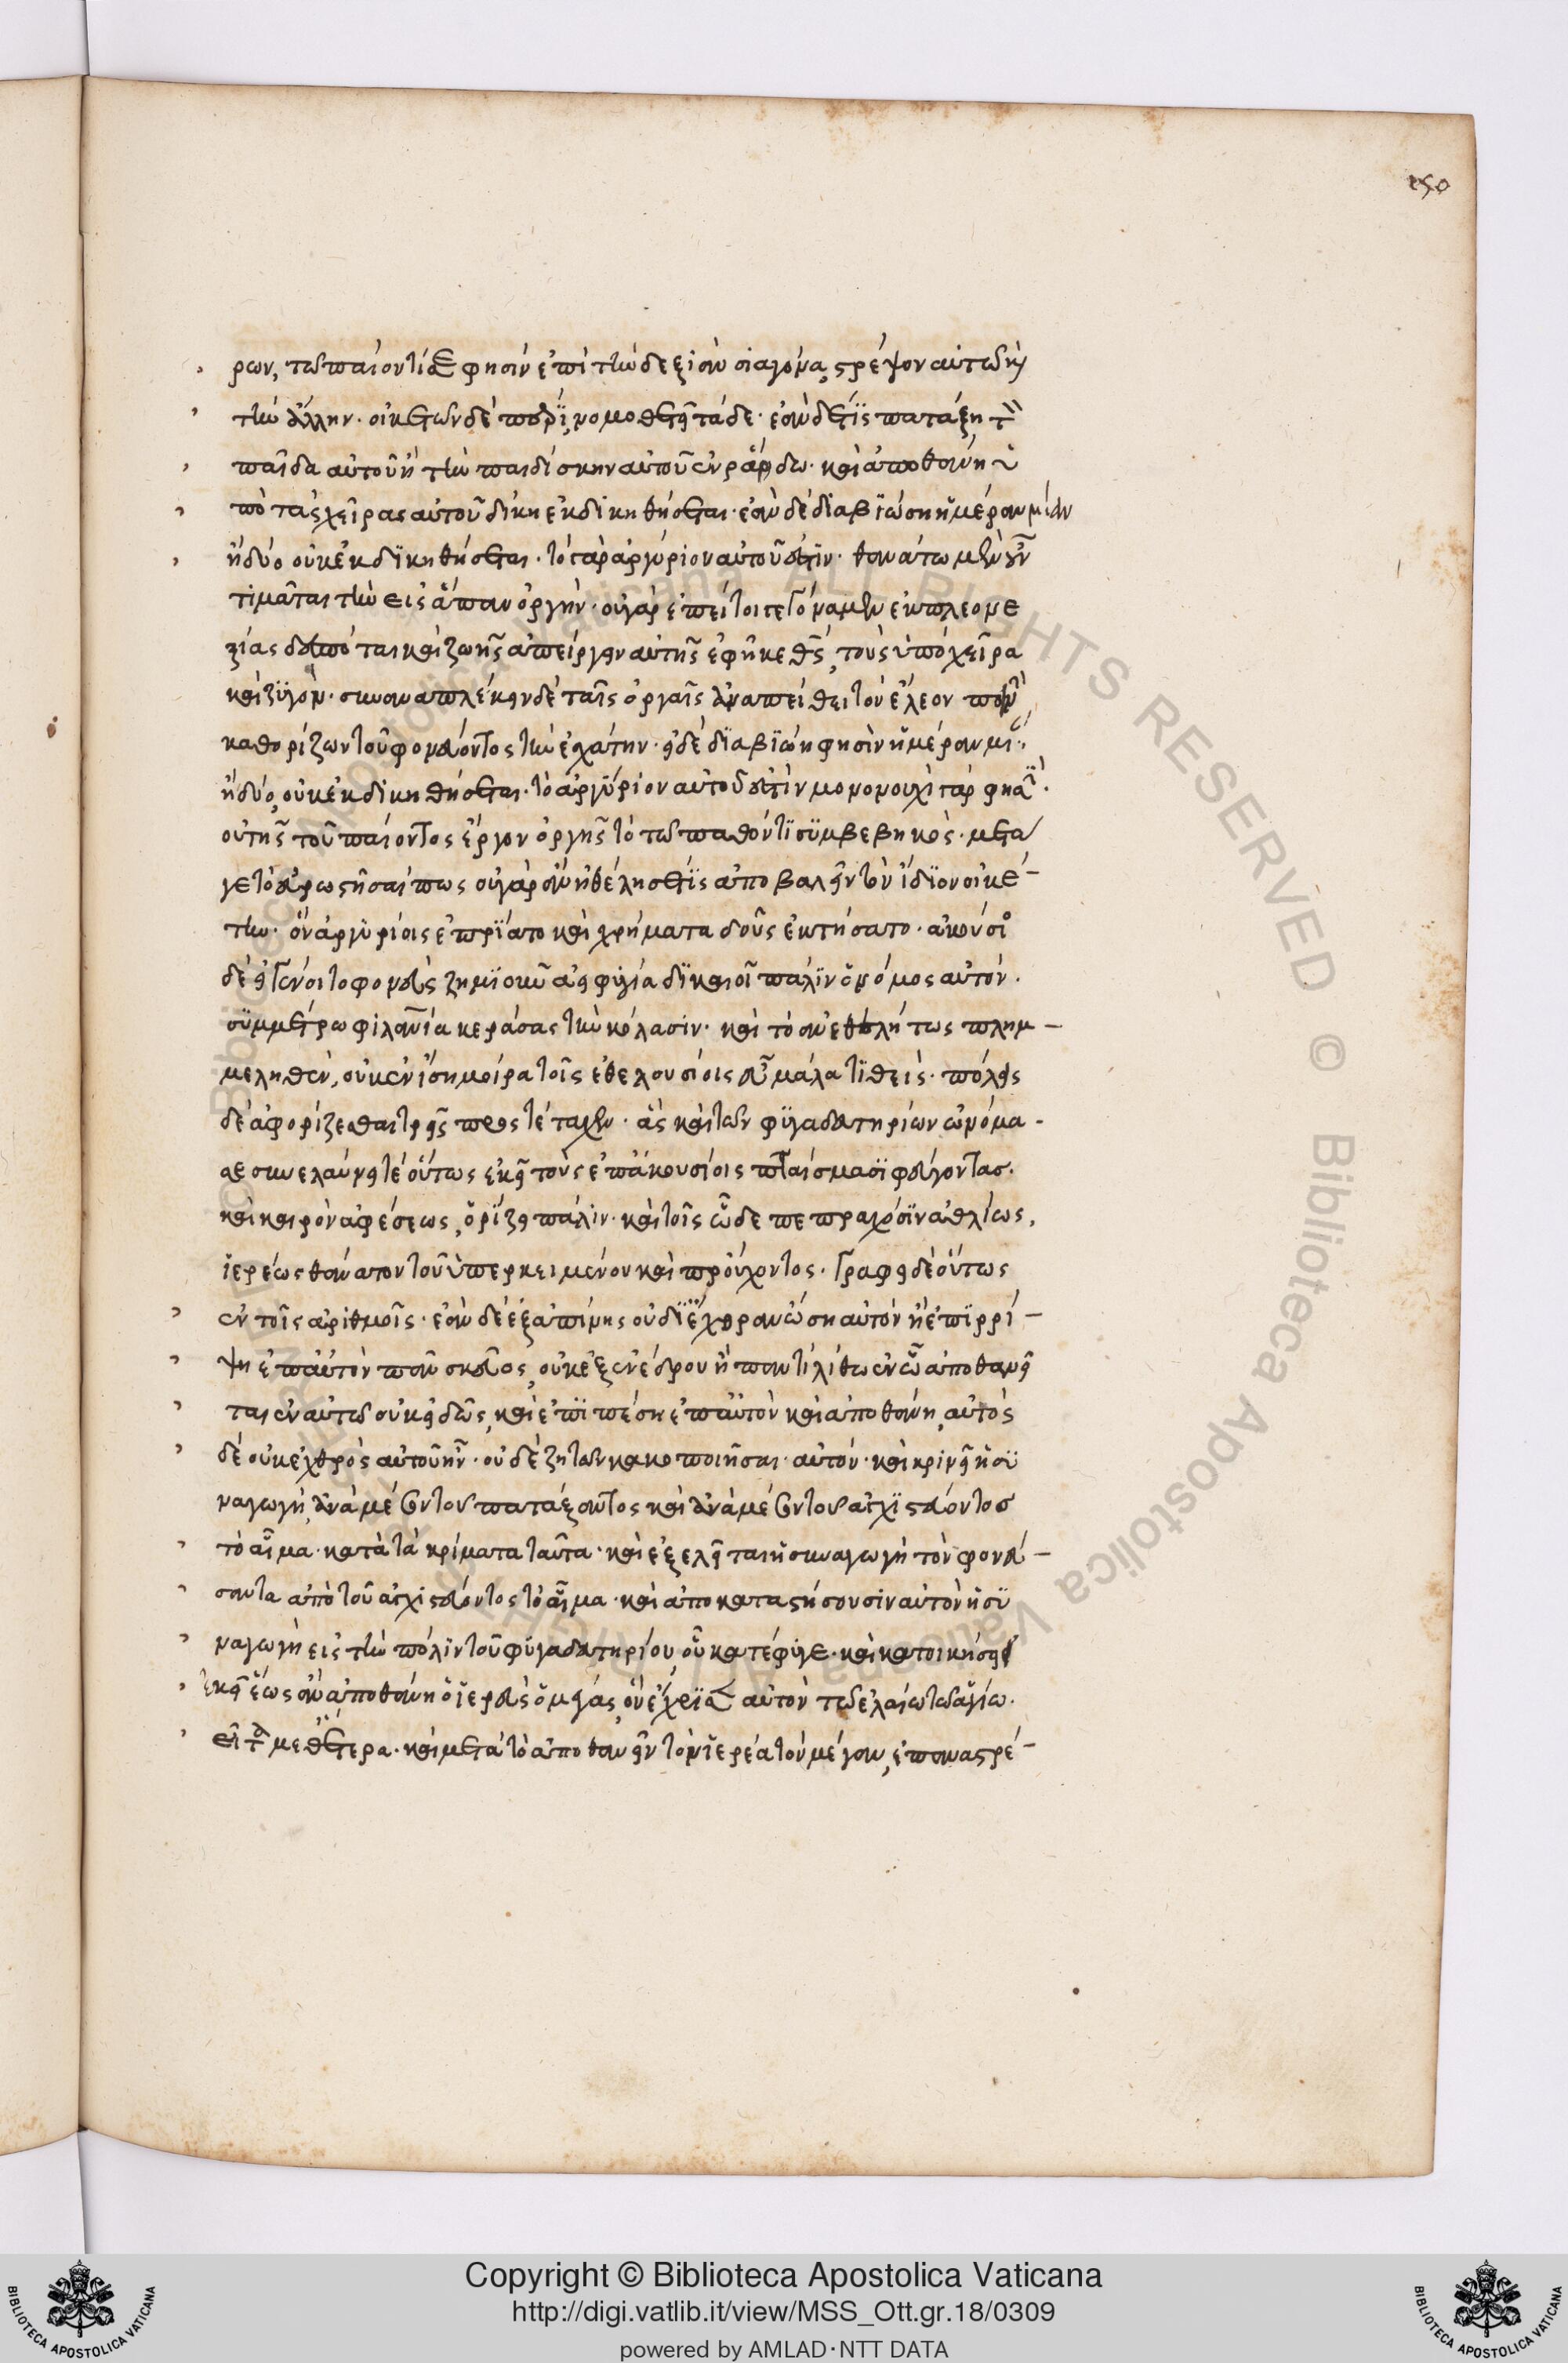 150
ρων, τῶ παίοντί σε φησὶν ἐπὶ τὴν δεξιὰν σιαγόνα, στρέψον αὐτῶ καὶ
τὴν ἄλλην. οἰκετῶν δὲ πέρι, νομοθετεῖ τάδε. ἐὰν δέ τις πατάξη τὸν
παῖδα αὐτοῦ ἢ τὴν παιδίσκην αὐτοῦ ἐν ράβδω. καὶ ἀποθάνη ὑ
πὸ τὰς χεῖρας αὐτοῦ δίκη ἐκδικηθήσεται. ἐὰν δὲ διαβιώση ἡμέραν μίαν
ἢ δύο οὐκ ἐκδικηθήσεται. τὸ γὰρ ἀργύριον αὐτοῦ ἐστιν. θανάτω μὲν οὖν
τιμᾶται τὴν εἰς ἅπαν ὀργήν. οὐ γὰρ ἐπεί τοι γέγοναμεν ἐκ πλεονε
ξίας δεσπόται καὶ ζωῆς ἀπείργειν αὐτῆς ἐφῆκε θεός, τοὺς ὑπὸ χεῖρα
καὶ ζυγόν. συναναπλέκειν δὲ ταῖς ὀργαῖς ἀναπείθει τὸν ἔλεον ποινὴν
καθορίζων τοῦ φονεύοντος τὴν ἐσχάτην. εἰ δὲ διαβιώη φησὶν ἡμέραν μίαν
ἢ δύο, οὐκ ἐκδικηθήσεται. τὸ ἀργύριον αὐτοῦ ἐστὶν μονονουχὶ γὰρ φησί.
οὐ τῆς τοῦ παίοντος ἔργον ὀργῆς τὸ τῶ παθόντι συμβεβηκός. μετα
γε τὸ ἀρρωστῆσαί πως οὐ γὰρ ἂν ἠθέλησέ τις ἀποβαλεῖν τὸν ἴδιον οἰκέ-
την. ὃν ἀργυρίοις ἐπρίατο καὶ χρήματα δοὺς ἐκτήσατο. ἀκούσιος
δὲ εἰ γένοιτο φονεὺς ζημιοῦν ἀειφυγία δικαιοῖ πάλιν ὁ νόμος αὐτόν.
συμμέτρω φιλανθρωπία κεράσας τὴν κόλασιν. καὶ τὸ ἀνεθελήτως πλημ-
μεληθέν, οὐκ ἐν ἴση μοίρα τοῖς ἐθελουσίοις εὖ μάλα τιθείς. πόλεις
δὲ ἀφορίζεσθαι τρεῖς προστέταχεν. ἃς καὶ τῶν φυγαδευτηρίων ὠνόμα-
σε συνελαύνει τὲ οὕτως ἐκεῖ τοὺς ἐπ' ἀκουσίοις πταίσμασι φεύγοντασ.
καὶ καιρὸν ἀφέσεως, ὁρίζει πάλιν. καὶ τοῖς ὧδε πεπραχόσιν ἀθλίως,
ἱερέως θάνατον τοῦ ὑπερκειμένου καὶ προὔχοντος. γράφει δὲ οὕτως
ἐν τοῖς ἀριθμοῖς. ἐὰν δὲ ἐξάπινης οὐ δι' ἔχθραν ὤση αὐτὸν ἢ ἐπιρρί-
ψη ἐπ' αὐτὸν πᾶν σκεῦος, οὐκ ἐξ ἐνέδρου ἢ παντὶ λίθω ἐν ὧ ἀποθανεῖ
ται ἐν αὐτῶ οὐκ εἰδώς, καὶ ἐπιπέση ἐπ' αὐτὸν καὶ ἀποθάνη, αὐτὸς
δὲ οὐκ ἐχθρὸς αὐτοῦ ἦν. οὐδὲ ζητῶν κακοποιῆσαι αὐτόν. καὶ κρινεῖ ἡ συ
ναγωγὴ, ἀνὰ μέσον τοῦ πατάξαντος καὶ ἀνὰ μέσον τοῦ ἀγχιστεύοντοσ
τὸ αἷμα. κατὰ τὰ κρίματα ταῦτα. καὶ ἐξελεῖται ἡ συναγωγὴ τὸν φονεύ-
σαντα ἀπὸ τοῦ ἀγχιστεύοντος τὸ αἷμα. καὶ ἀποκαταστήσουσιν αὐτὸν ἡ συ
ναγωγὴ εἰς τὴν πόλιν τοῦ φυγαδευτηρίου, οὗ κατέφυγε. καὶ κατοικήσει
ἐκεῖ ἕως ἂν ἀποθάνη ὁ ἱερεὺς ὁ μέγας, ὃν ἔχρισαν αὐτὸν τῶ ἐλαίω τῶ ἁγίω.
εἶτα μεθέτερα. καὶ μετὰ τὸ ἀποθανεῖν τὸν ἱερέα τὸν μέγαν, ἐπαναστρέ-
Copyright © Biblioteca Apostolica Vaticana
http://digi.vatlib.it/view/MSS_Ott.gr.18/0309
powered by AMLAD·NTT DATA